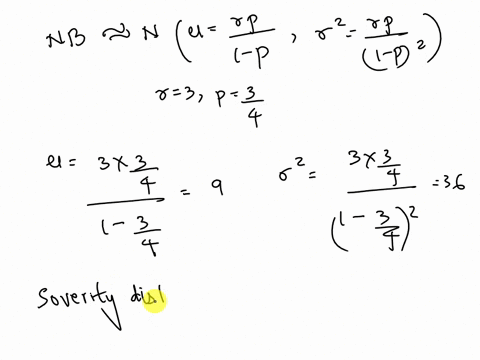 NB ≈ N ( μ = rp/(1-p) , σ² = rp/(1-p)² )
r=3, p=3/4
μ = (3×3/4)/(1-3/4) = 9 σ² = (3×3/4)/(1-3/4)² =36
Soverity dist